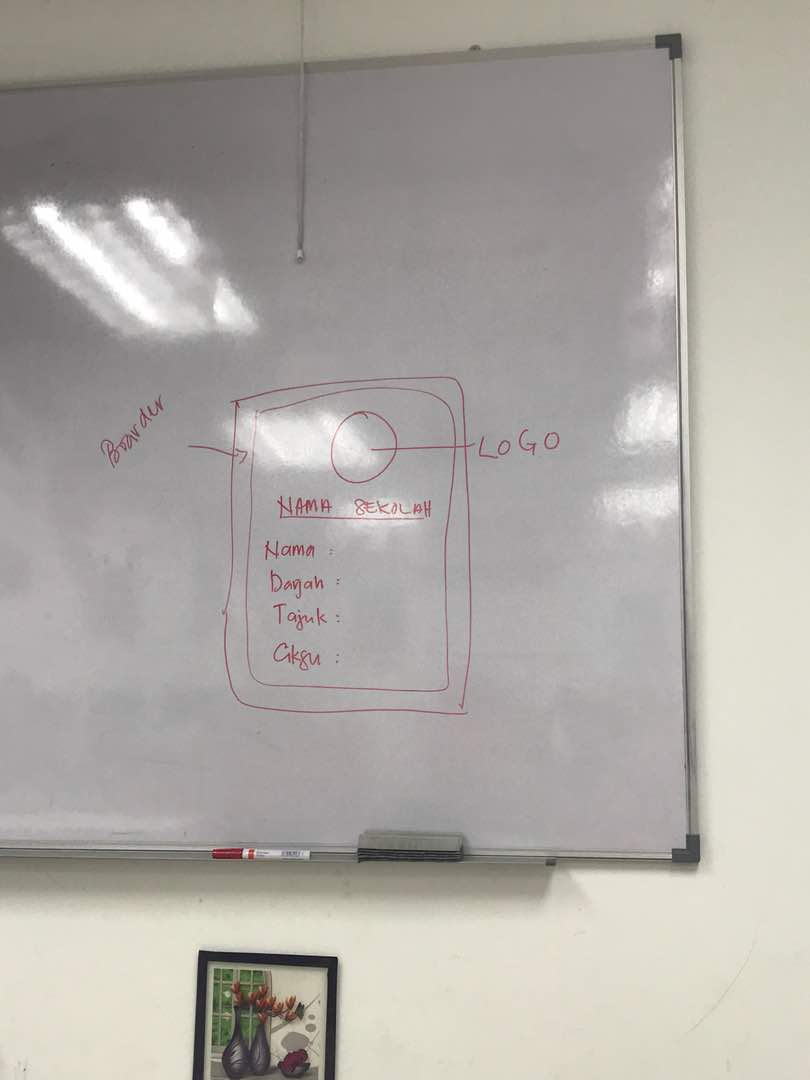 Boarder
LOGO
NAMA SEKOLAH
Nama :
Darjah :
Tajuk :
Cikgu :